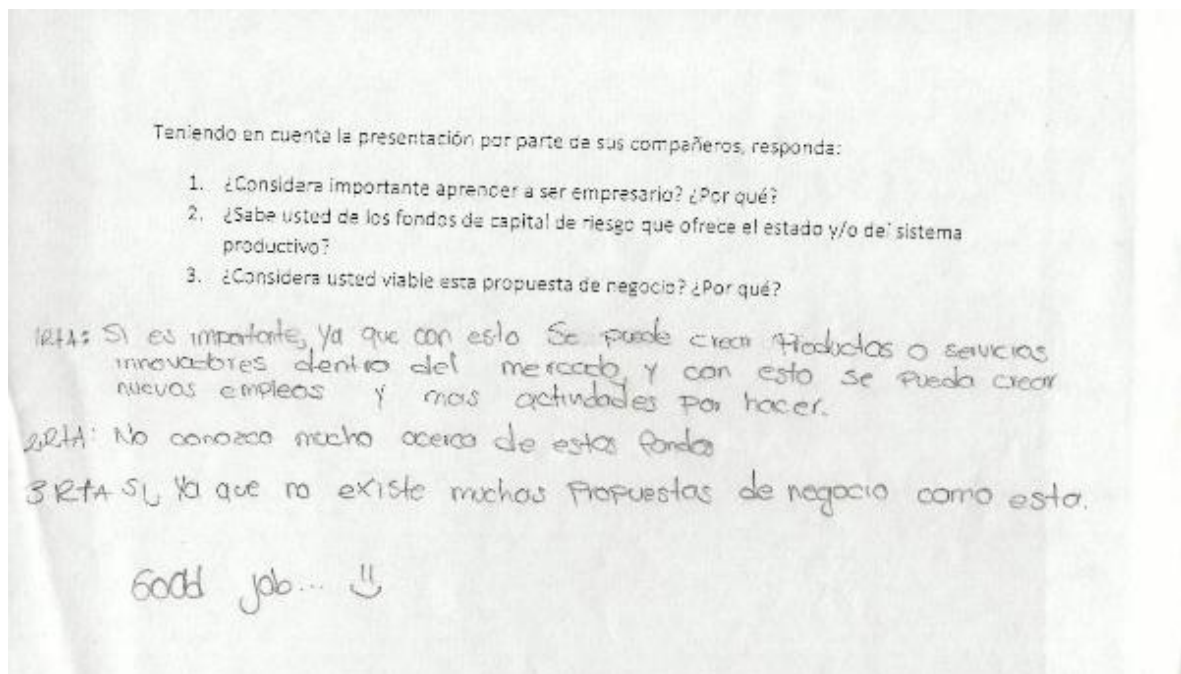 Teniendo en cuenta la presentación por parte de sus compañeros, responda:
1. ¿Considera importante aprender a ser empresario? ¿Por qué?
2. ¿Sabe usted de los fondos de capital de riesgo que ofrece el estado y/o del sistema
productivo?
3. ¿Considera usted viable esta propuesta de negocio? ¿Por qué?
1RTA: SI es importante, Ya que con esto Se puede crear Productos o servicios
innovadores dentro del mercado, Y con esto se pueda crear
nuevos empleos Y mas actividades por hacer.
2RTA: No conozco mucho acerca de estos fondos
3 RTA SI, Ya que no existe muchas Propuestas de negocio como esta.
Good job...